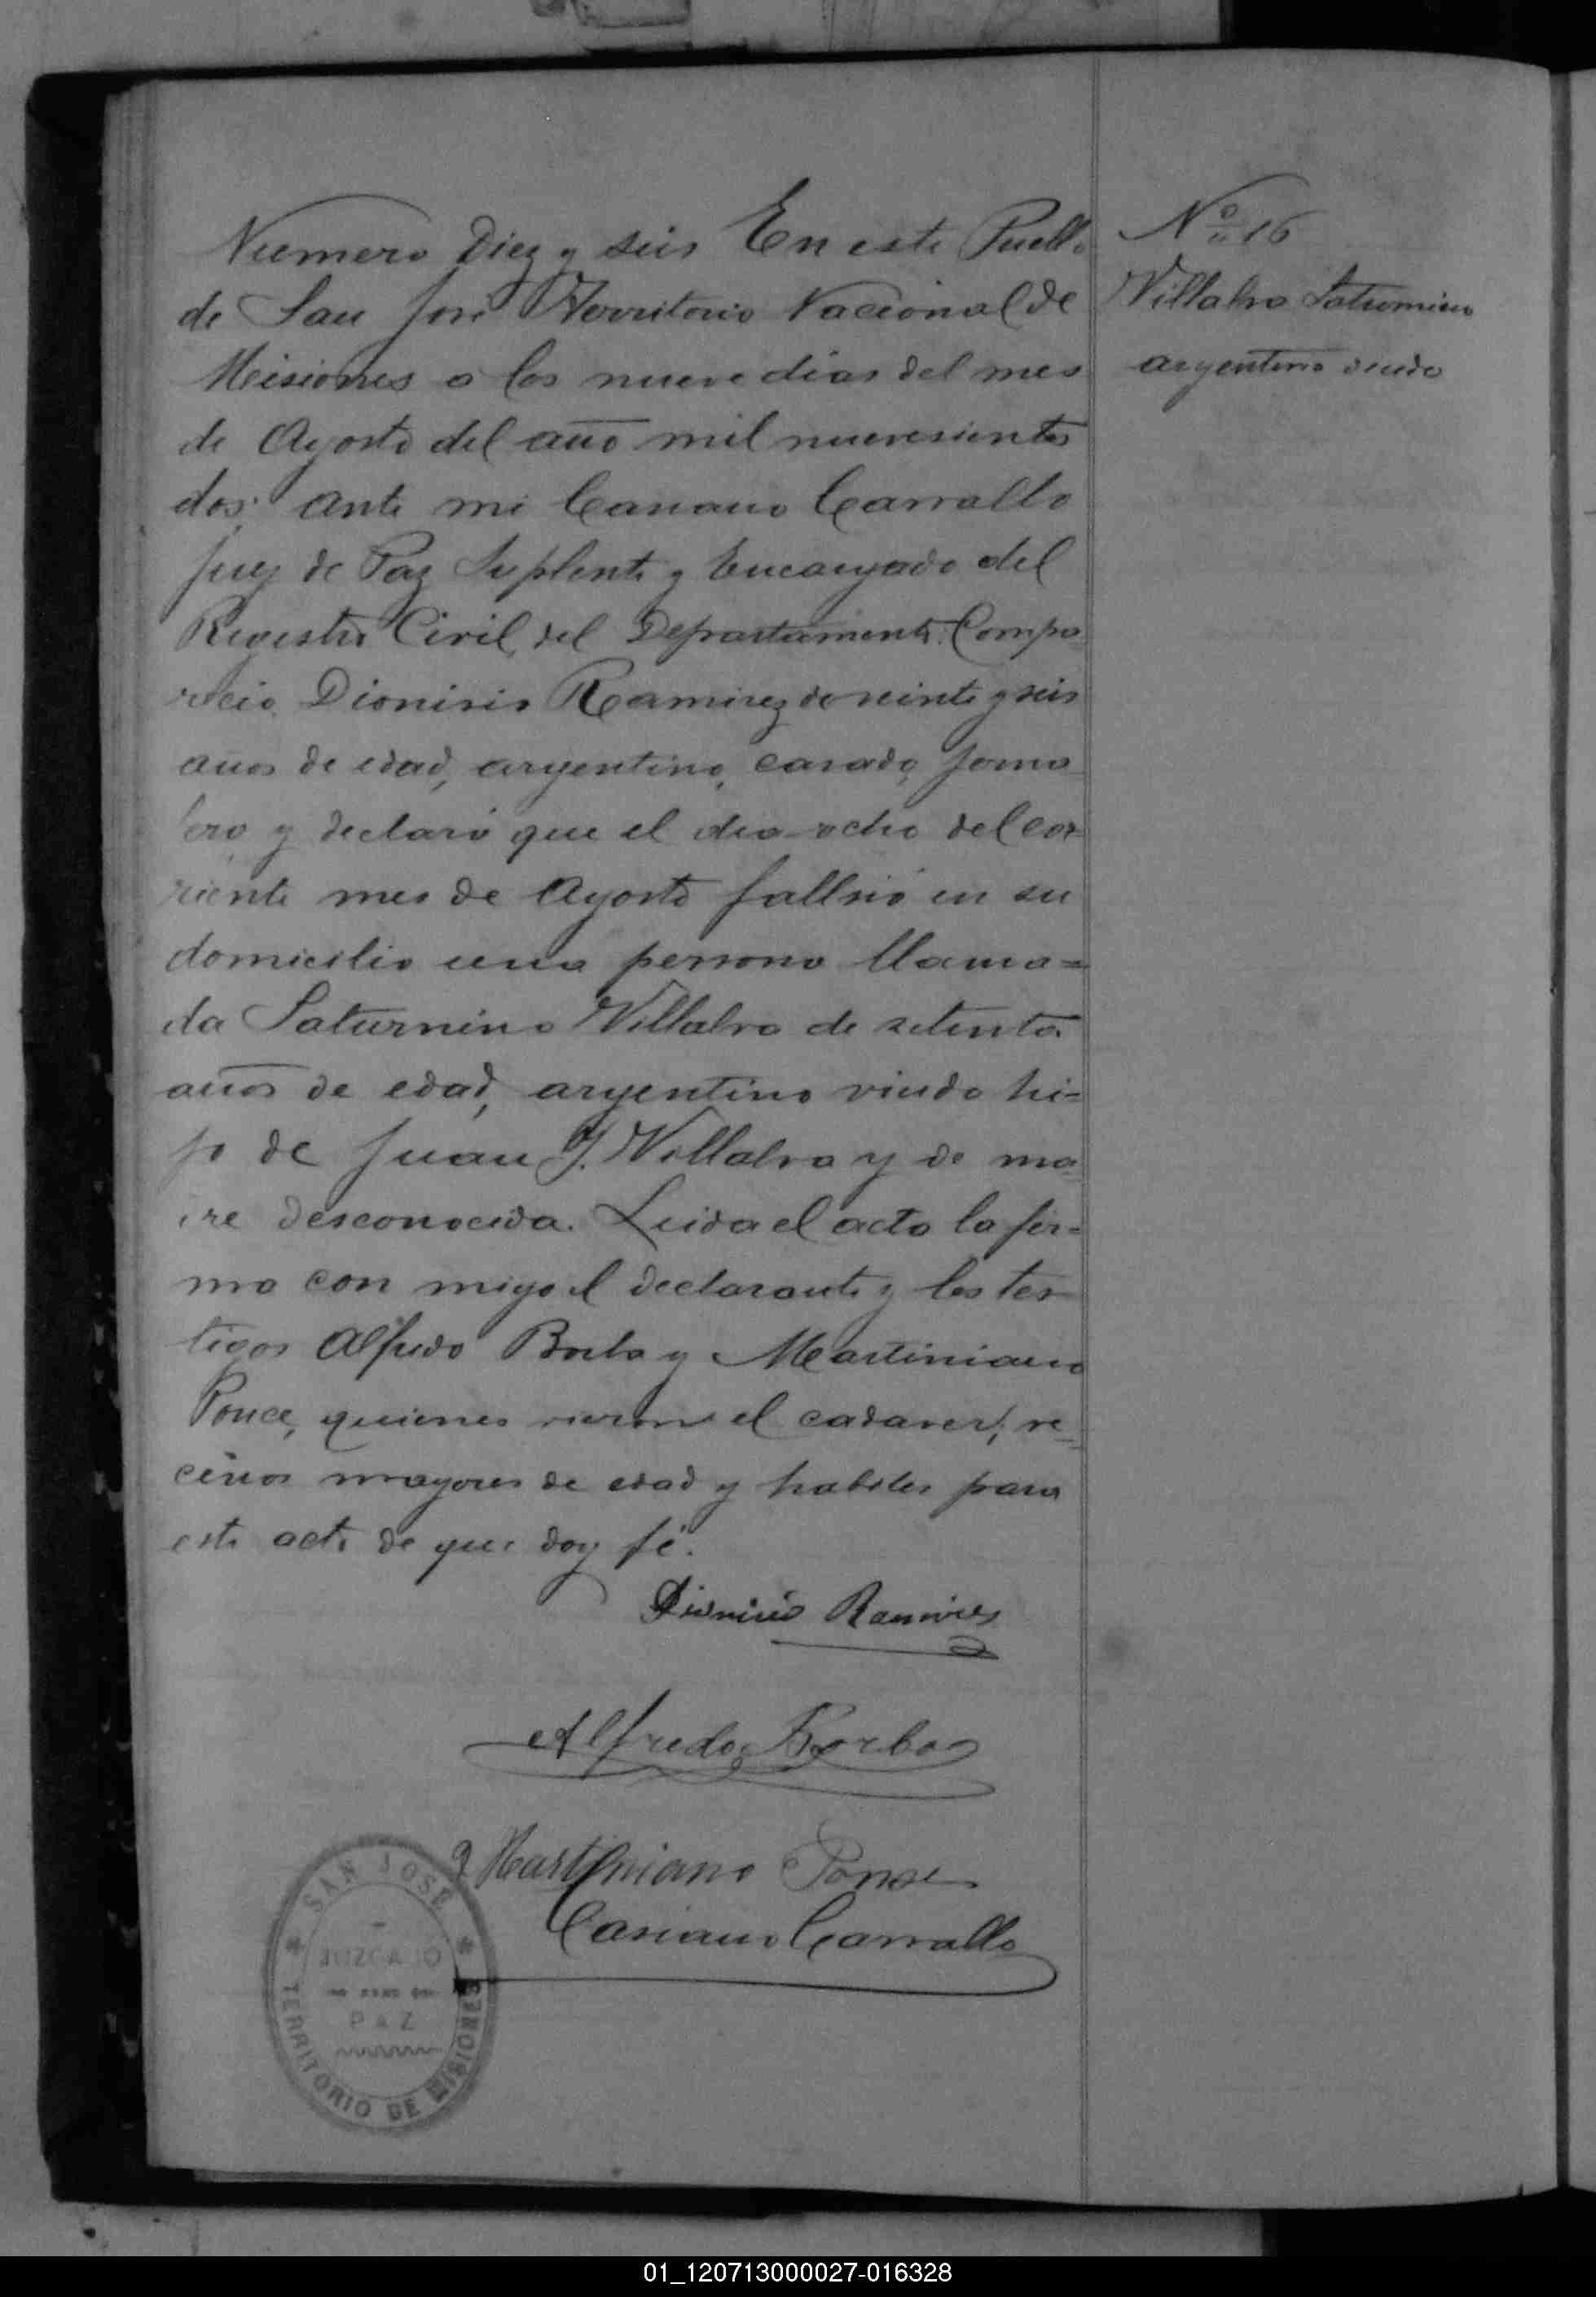 Numero Diez y seis En este Pueblo
de San José Territorio Nacional de
Misiones a los nueve dias del mes
de Agosto del año mil nuevesientos
dos; ante mi Casiano Carvallo
Juez de Paz Suplente y Encargado del
Registro Civil, del Departamento. Compa
recio Dionisio Ramirez de veinte y seis
años de edad, argentino, casado, jorna
lero y declaró que el dia ocho del cor-
riente mes de Agosto fallsió en su
domicilio una persona llama=
da Saturnino Villalva de setenta
años de edad, argentino viudo hi-
jo de Juan J. Villalva y de ma
dre desconocida. Leida el acta la fir=
mo con migo el declarante y los tes-
tigos Alfredo Borba y Martiniano
Ponce, quienes vieron el cadaver; ve
cinos mayores de edad y habiles para
este acto de que doy fé.
Dionicio Ramires
Alfredo Borba
Martiniano Ponse
Casiano Carvallo
Nº 16
Villalva Saturnino
argentino viudo
SAN JOSÉ
JUZGADO
PAZ
TERRITORIO DE MISIONES
01_120713000027-016328